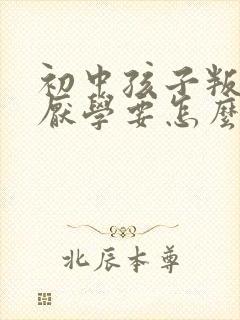 初中孩子叛
厭學要怎麼
北辰本尊